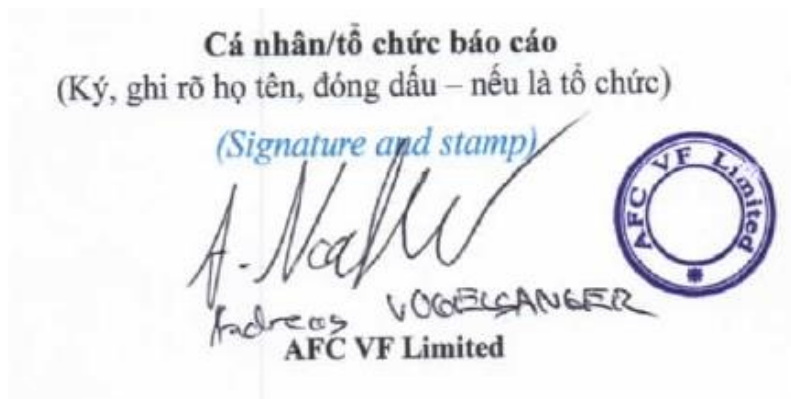 Cá nhân/tổ chức báo cáo
(Ký, ghi rõ họ tên, đóng dấu – nếu là tổ chức)
(Signature and stamp)
AFC VF Limited
Andreas VOGELSANGER
AFC VF Limited